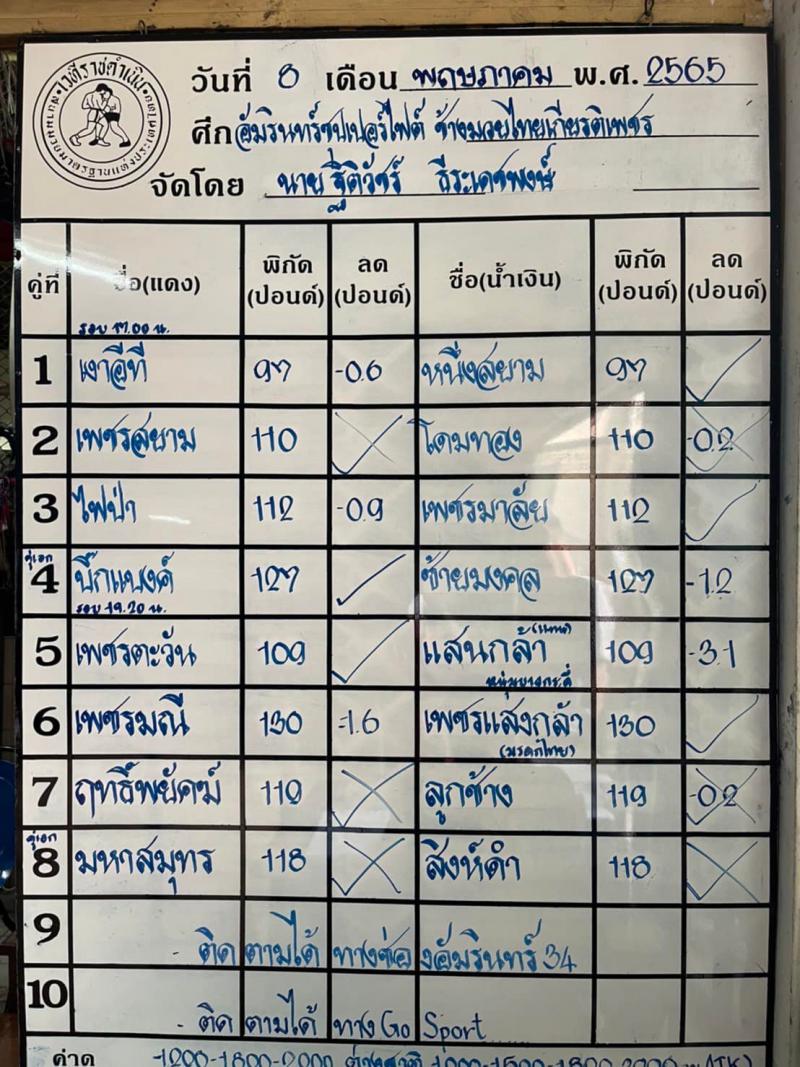 เวทีราชดำเนิน
สนามมวยมาตรฐานแห่งประเทศไทย
วันที่ 8 เดือน พฤษภาคม พ.ศ. 2565
ศึก อัมรินทร์ซุปเปอร์ไฟต์ ช้างมวยไทยเกียรติเพชร
จัดโดย นายฐิติวัชร์ ธีระเดชพงษ์
คู่ที่ ชื่อ(แดง) พิกัด (ปอนด์) ลด (ปอนด์) ชื่อ(น้ำเงิน) พิกัด (ปอนด์) ลด (ปอนด์)
รอบ 17.00 น.
1 เงาอีที 97 -0.6 หนึ่งสยาม 97 ✓
2 เพชรสยาม 110 โดมทอง 110 -0.2
3 ไฟป่า 112 -0.9 เพชรมาลัย 112 ✓
คู่เอก
4 บิ๊กแบงค์ 127 ✓ ซ้ายมงคล 127 -1.2
รอบ 19.20 น.
5 เพชรตะวัน 109 ✓ แสนกล้า (แทน) 109 -3.1
หนุ่มบางกะดี่
6 เพชรมณี 130 -1.6 เพชรแสงกล้า 130 ✓
(มรดกไทย)
7 ฤทธิ์พยัคฆ์ 119 ลูกช้าง 119 -0.2
คู่เอก
8 มหาสมุทร 118 สิงห์ดำ 118
9 - ติดตามได้ ทางช่องอัมรินทร์ 34
10 - ติดตามได้ ทาง Go Sport
ค่าดู -1200-1800-2000 ต่างชาติ